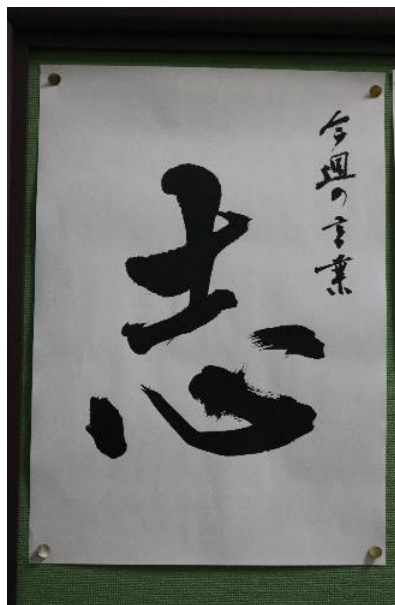 今週の言葉
志